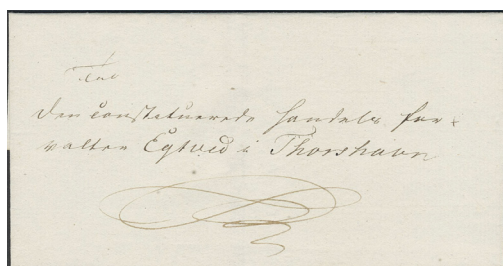 Til
den constituerede Handels for-
valter Egtved i Thorshavn